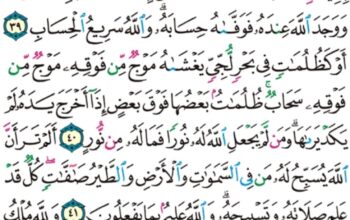 وَوَجَدَ ٱللَّهَ عِندَهُۥ فَوَفَّىٰهُ حِسَابَهُۥ وَٱللَّهُ سَرِيعُ ٱلْحِسَابِ ٣٩
أَوْ كَظُلُمَـٰتٍ فِى بَحْرٍ لُّجِّىٍّ يَغْشَىٰهُ مَوْجٌ مِّن فَوْقِهِۦ مَوْجٌ مِّن
فَوْقِهِۦ سَحَابٌ ظُلُمَـٰتٌۢ بَعْضُهَا فَوْقَ بَعْضٍ إِذَآ أَخْرَجَ يَدَهُۥ لَمْ
يَكَدْ يَرَىٰهَا وَمَن لَّمْ يَجْعَلِ ٱللَّهُ لَهُۥ نُورًا فَمَا لَهُۥ مِن نُّورٍ ٤٠ أَلَمْ تَرَ أَنَّ
ٱللَّهَ يُسَبِّحُ لَهُۥ مَن فِى ٱلسَّمَـٰوَٰتِ وَٱلْأَرْضِ وَٱلطَّيْرُ صَـٰٓفَّـٰتٍ كُلٌّ قَدْ
عَلِمَ صَلَاتَهُۥ وَتَسْبِيحَهُۥ وَٱللَّهُ عَلِيمٌۢ بِمَا يَفْعَلُونَ ٤١ وَلِلَّهِ مُلْكُ